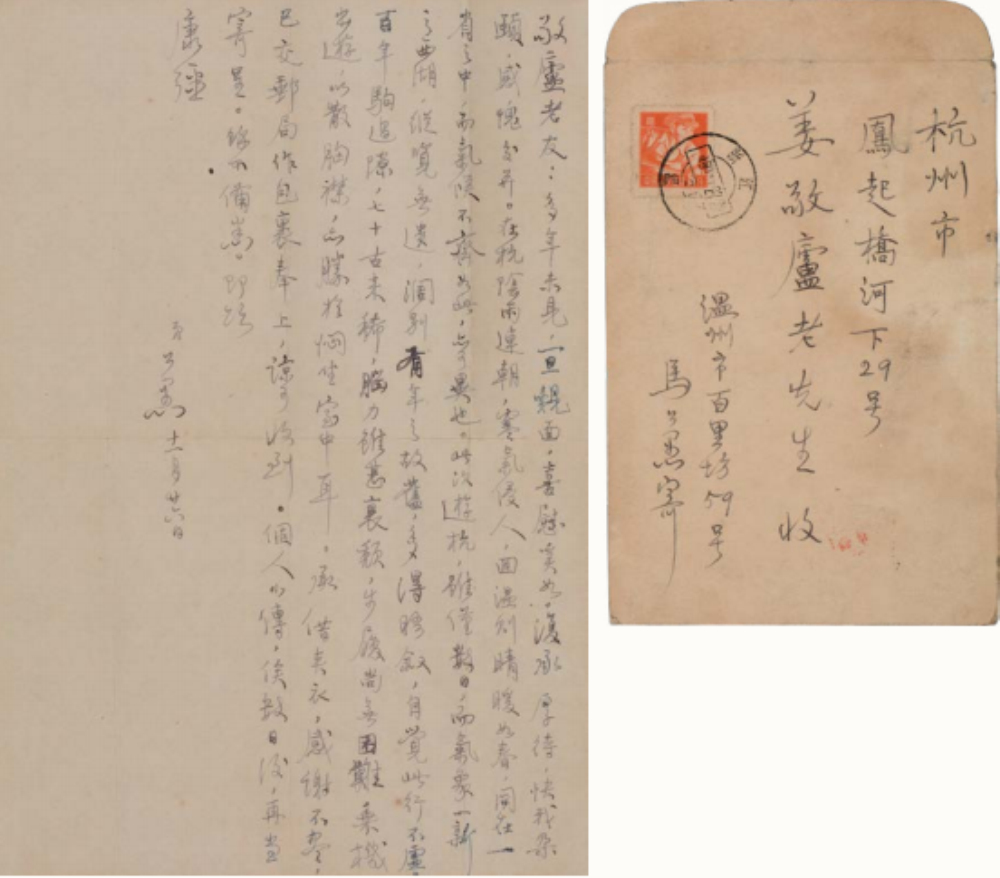 敬廬老友：多年未見，一旦覿面，喜慰奚如。復承厚待，快我朵
頤，感愧交并。在杭陰雨連朝，寒氣侵人，回溫則晴暖如春，同在一
省之中，而氣候不齊如此，亦可異也。此次遊杭，雖僅數日，而氣象一新
之西湖，縱覽無遺，濶別有年之故舊，多得晤敘，自覺此行不虛。
百年駒過隙，七十古未稀，腦力雖甚衰頹，步履尚無困難，乘機
出遊，以散胸襟，亦勝於悶坐家中耳。承借夾衣，感謝不盡，
已交郵局作包裹奉上，諒可到。個人小傳，俟數日後，再當
寄呈。餘不備。即頌
康彊
弟公愚 十一月廿六日
杭州市
鳳起橋河下29号
姜敬廬老先生 收
溫州市百里坊59号
馬公愚寄